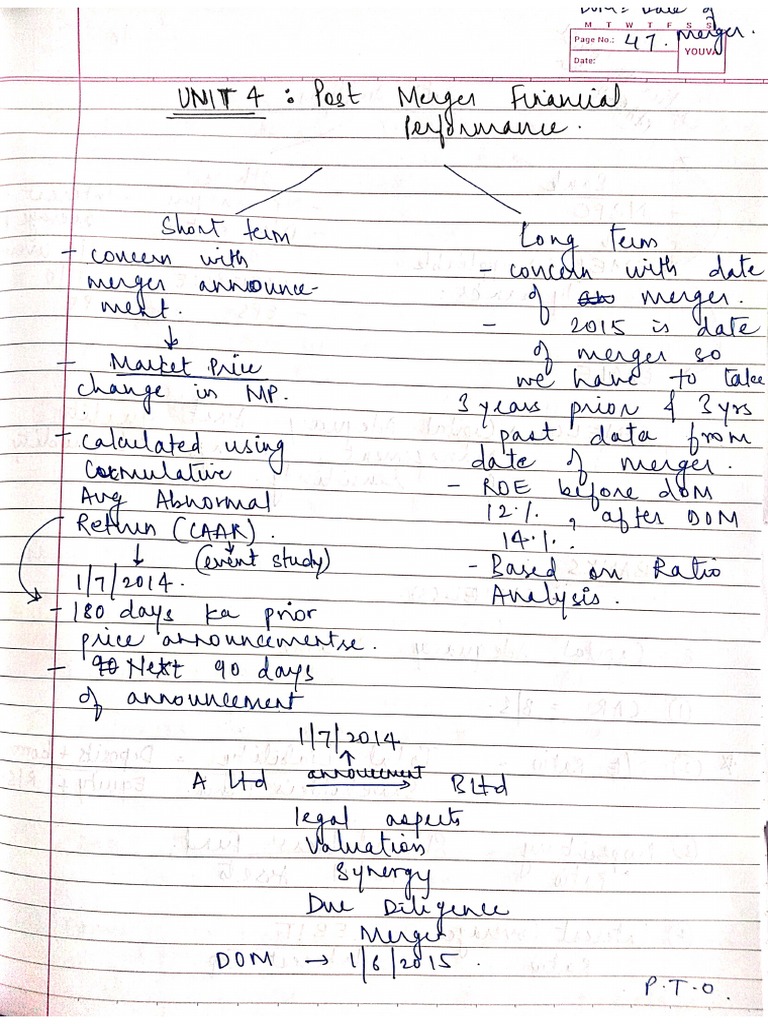 DOM = Date of
merger.
M T W T F S S
Page No.: 47.
YOUVA
Date:
UNIT 4 : Post Merger Financial
Performance.
Short term
- concern with
merger announce-
ment.
↓
- Market Price
change in MP.
- calculated using
Cummulative
Avg Abnormal
Return (CAAR).
↓ (event study)
1/7/2014.
- 180 days ka prior
price announcementse.
- Next 90 days
of announcement
Long term
- concern with date
of merger.
- 2015 is date
of merger so
we have to take
3 years prior & 3 yrs
past data from
date of merger.
- ROE before DOM
12%, after DOM
14%.
- Based on Ratio
Analysis.
1/7/2014
↑
A Ltd announcement → B Ltd
legal aspects
Valuation
Synergy
Due Diligence
Merger
DOM → 1/6/2015.
P.T.O.